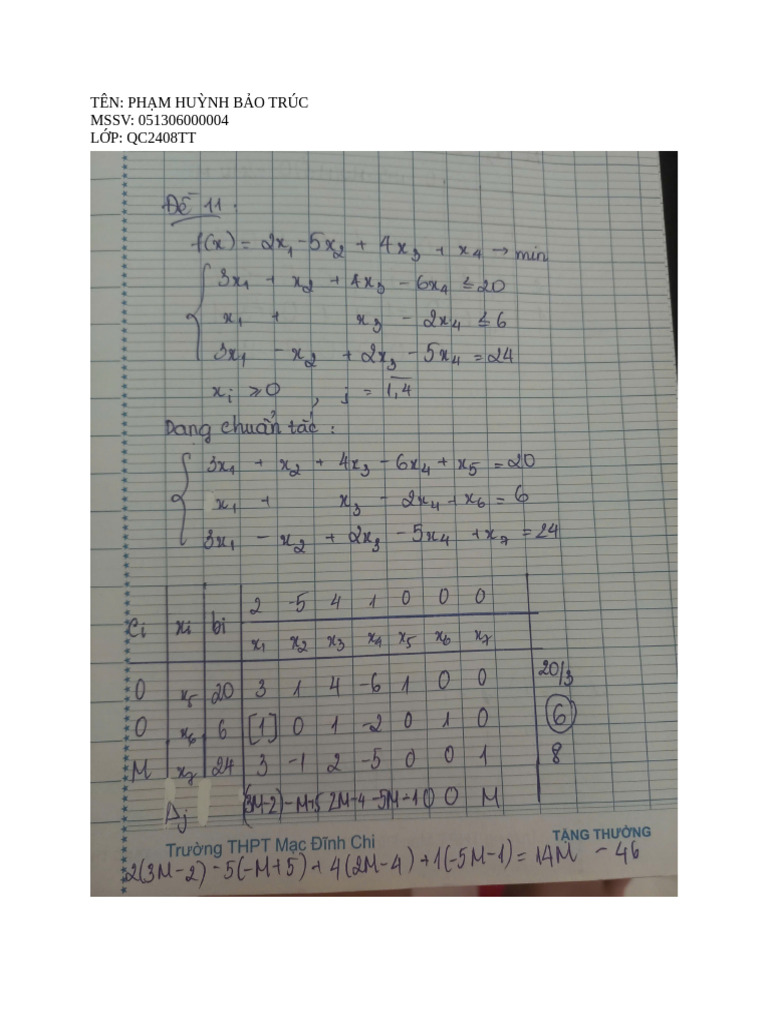 TÊN: PHẠM HUỲNH BẢO TRÚC
MSSV: 051306000004
LỚP: QC2408TT
Đề 11.
f(x) = 2x₁ - 5x₂ + 4x₃ + x₄ → min
3x₁ + x₂ + 4x₃ - 6x₄ ≤ 20
x₁ + x₃ - 2x₄ ≤ 6
3x₁ - x₂ + 2x₃ - 5x₄ = 24
xⱼ ≥ 0 , j = 1,4
Dạng chuẩn tắc :
3x₁ + x₂ + 4x₃ - 6x₄ + x₅ = 20
x₁ + x₃ - 2x₄ + x₆ = 6
3x₁ - x₂ + 2x₃ - 5x₄ + x₇ = 24
2 -5 4 1 0 0 0
Ci xi bi x₁ x₂ x₃ x₄ x₅ x₆ x₇
0 x₅ 20 3 1 4 -6 1 0 0 20/3
0 x₆ 6 [1] 0 1 -2 0 1 0 6
M x₇ 24 3 -1 2 -5 0 0 1 8
Δj (3M-2) -M+5 2M-4 -5M-1 0 0 M
Trường THPT Mạc Đĩnh Chi TẶNG THƯỞNG
2(3M-2) - 5(-M+5) + 4(2M-4) + 1(-5M-1) = 14M - 46